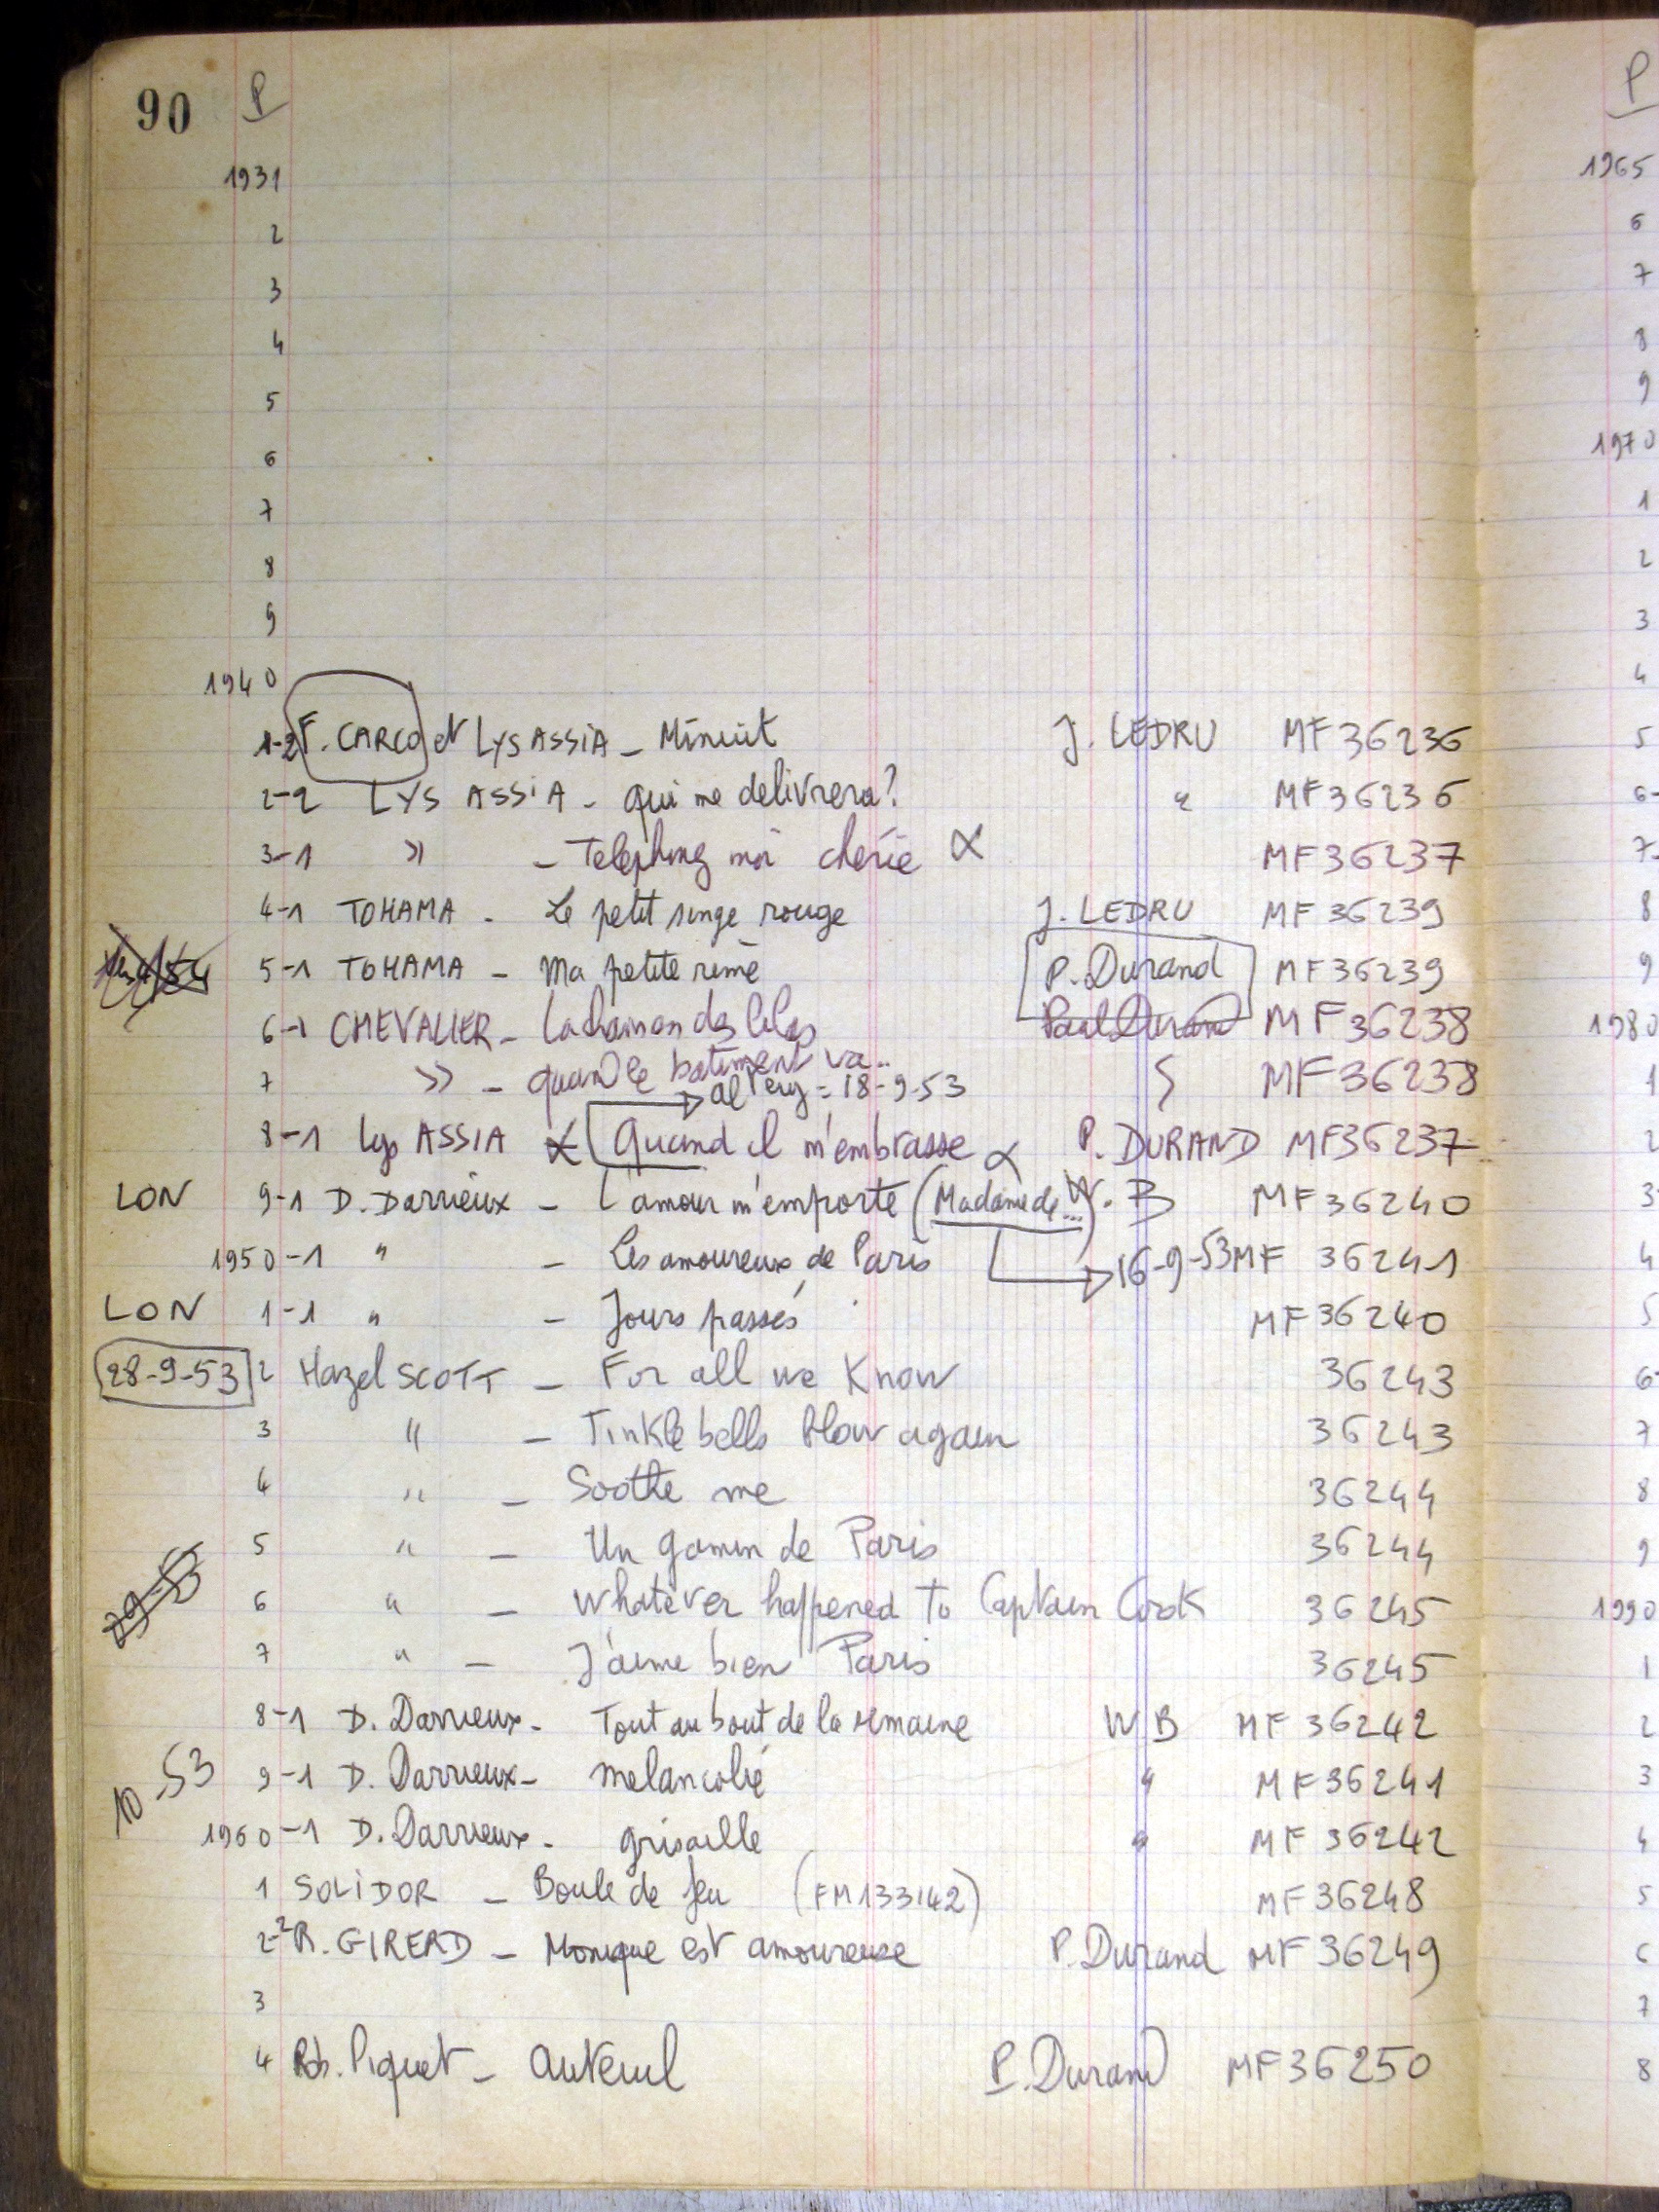 90 P
1931
2
3
4
5
6
7
8
9
1940
1-2 F. CARCO et LYS ASSIA - Minuit J. LEDRU MF 36236
2-2 LYS ASSIA - qui me delivrera? " MF 36236
3-1 " - Telephonez moi chérie MF 36237
4-1 TOHAMA - Le petit singe rouge J. LEDRU MF 36239
5-1 TOHAMA - Ma petite rime P. Durand MF 36239
6-1 CHEVALIER - La chanson des lilas Paul Durand MF 36238
7 " - quand le batiment va... MF 36238
al 1er eng = 18-9-53
8-1 Lys ASSIA Quand il m'embrasse P. DURAND MF36237
LON 9-1 D. Darrieux - L'amour m'emporte (Madame de...) W. B MF 36240
1950-1 " - Les amoureux de Paris 16-9-53 MF 36241
LON 1-1 " - Jours passés MF 36240
28-9-53 2 Hazel SCOTT - For all we Know 36243
3 " - Tinkle bells blow again 36243
4 " - Soothe me 36244
5 " - Un gamin de Paris 36244
29-9-53
6 " - Whatever happened to Captain Cook 36245
7 " - J'aime bien Paris 36245
8-1 D. Darrieux - Tout au bout de la semaine W B MF 36242
10-53 9-1 D. Darrieux - melancolie " MF 36241
1960-1 D. Darrieux - grisaille " MF 36242
1 SOLIDOR - Boule de feu (FM133142) MF 36248
2-2 R. GIRERD - Monique est amoureuse P. Durand MF 36249
3
4 Rob. Piquet - Auteuil P. Durand MF 36250
P
1965
6
7
8
9
1970
1
2
3
4
5
6-
7-
8
9
1980
1
2
3
4
5
6-
7
8
9
1990
1
2
3
4
5
6
7
8